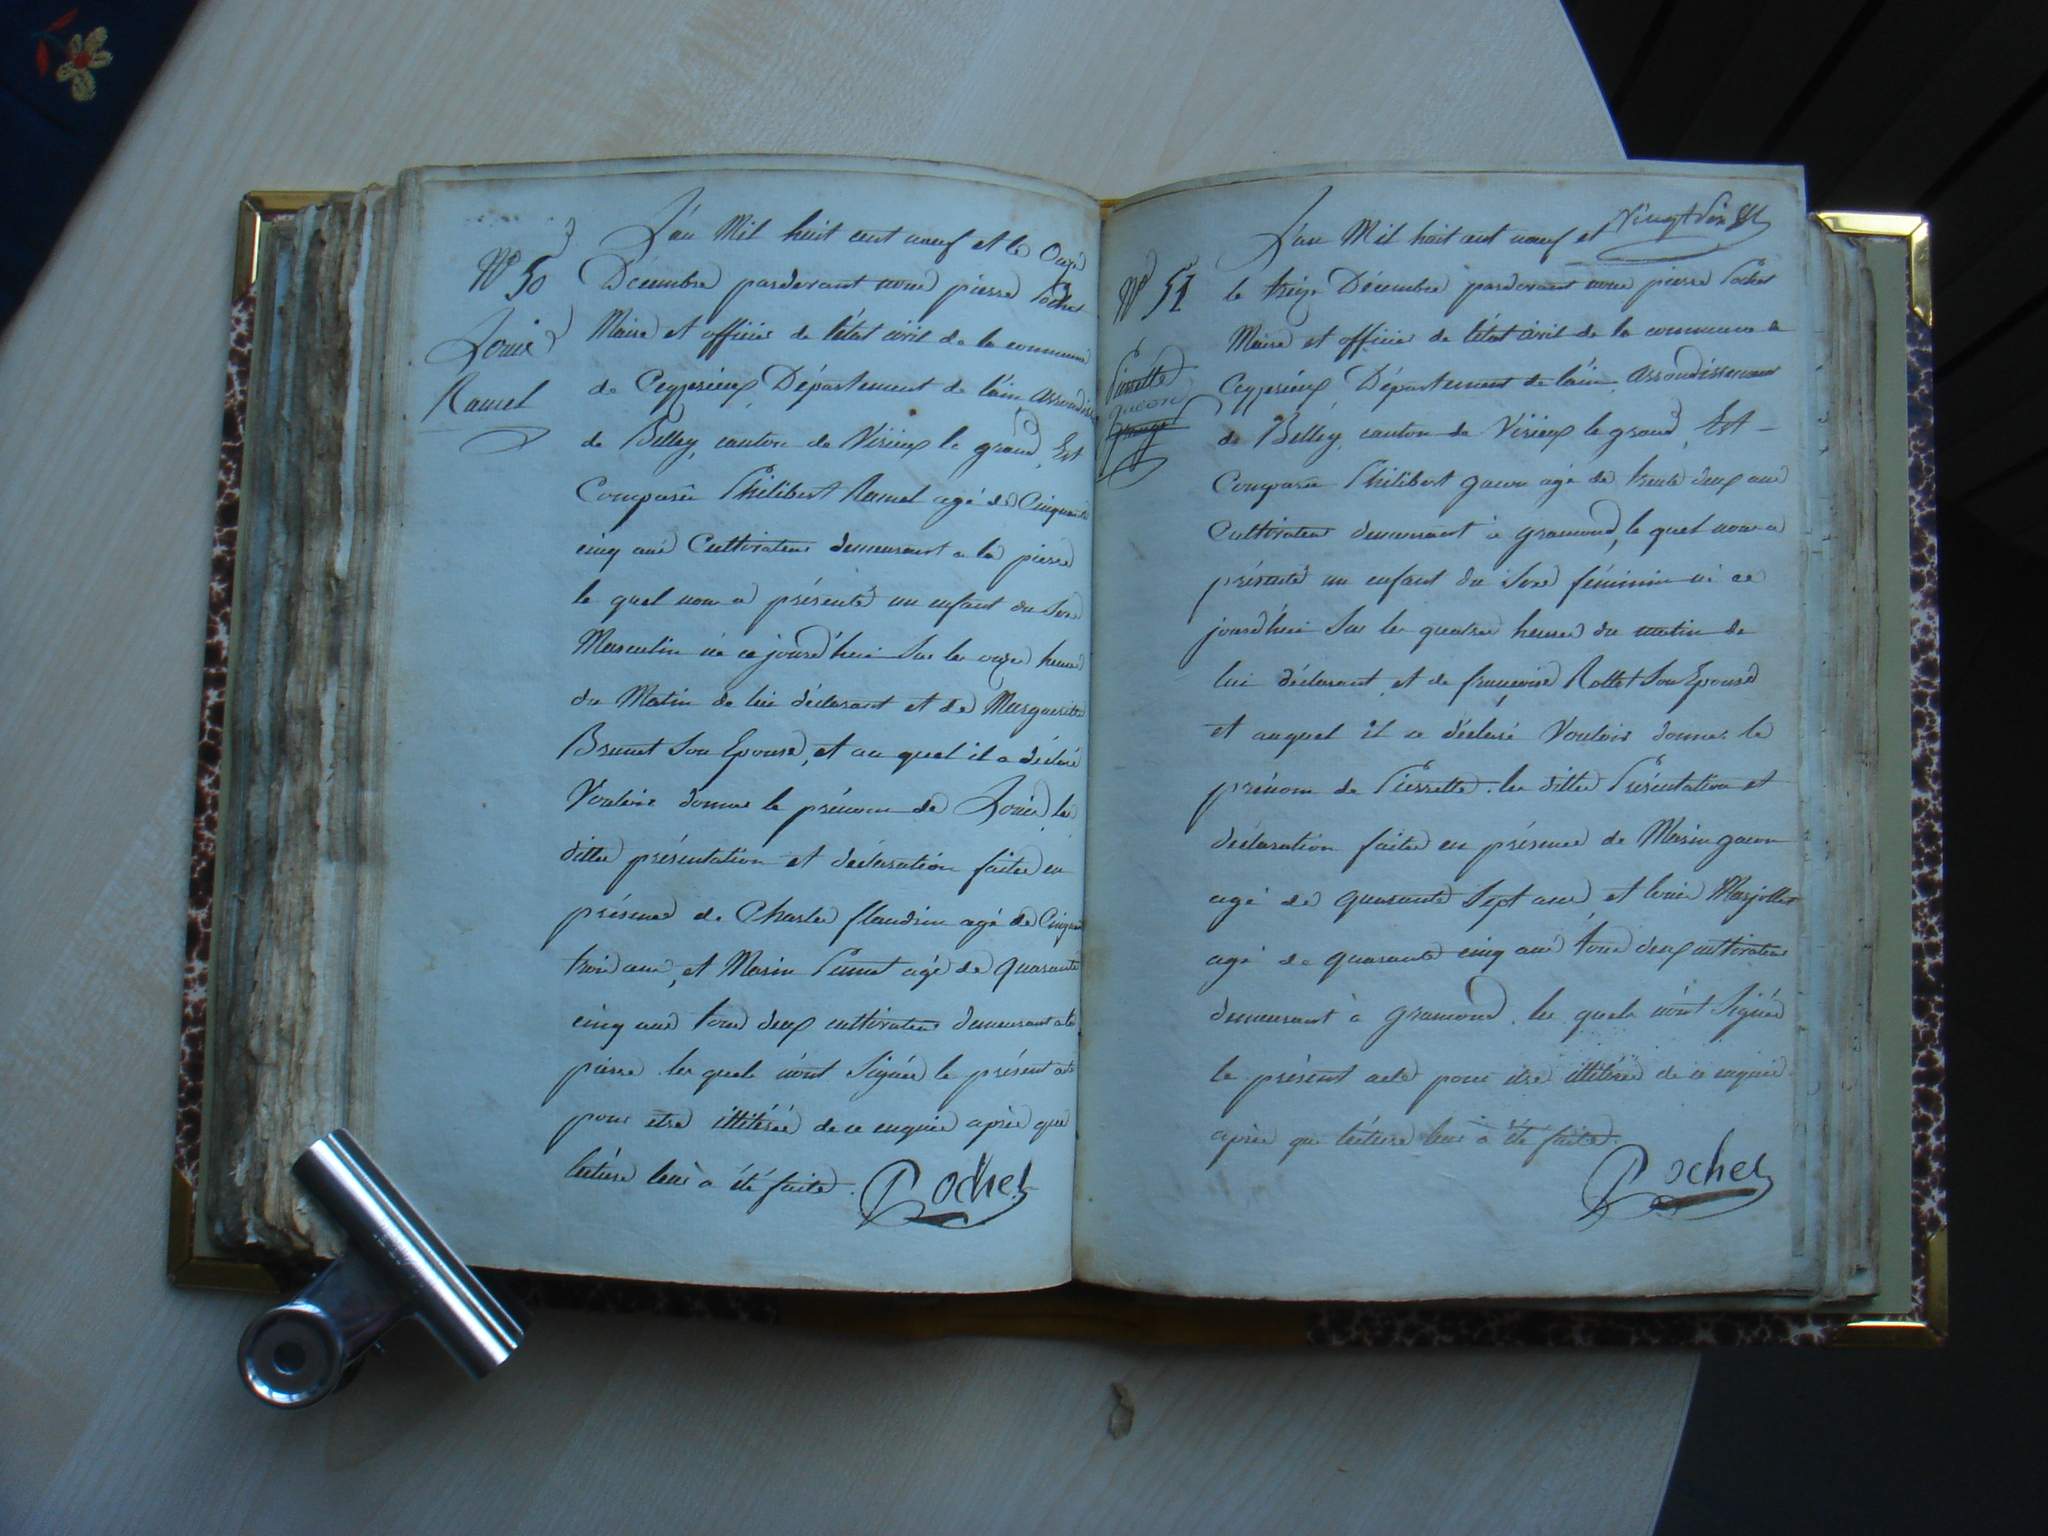 N° 50
Louis
Ramel
L'an Mil huit cent neuf et le Onze
Décembre pardevant nous pierre Pochet
Maire et officier de l'état civil de la commune
de Ceyzérieux Département de l'ain arrondiss
de Belley, canton de Virieux le grand, Est
Comparu Philibert Ramel agé de Cinquante
cinq ans Cultivateur demeurant a la pierre
le quel nous a présenté un enfant du Sexe
Masculin né ce jourd'hui Sur les onze heures
du Matin de lui déclarant et de Margueritte
Brunet Son Epouse, et au quel il a déclaré
Vouloir donner le prénom de Louis, les
dittes présentation et déclaration faites en
présence de Charles flandrin agé de Cinquante
trois ans, et Marin agé de quarante
cinq ans tous deux cultivateurs demeurant a la
pierre les quels n'ont Signés le présent acte
pour etre illitérés de ce enquis après que
lecture leur a été faite.
Pochet
Vingt Six
N° 51
Pierrette
gacon
L'an Mil huit cent neuf et
le treize Décembre pardevant nous pierre Pochet
Maire et officier de l'état civil de la commune de
Ceyzérieux Département de l'ain, arrondissement
de Belley, canton de Virieux le grand, Est
Comparu Philibert gacon agé de trente deux ans
Cultivateur demeurant à gramond, le quel nous a
présenté un enfant du Sexe féminin né ce
jourd'hui Sur les quatre heures du matin de
lui déclarant, et de françoise Rollet Son Epouse
et auquel il a déclaré Vouloir donner le
prénom de Pierrette. les dittes Présentation et
déclaration faites en présence de Marin gacon
agé de quarante Sept ans et louis Marjollet
agé de quarante cinq ans tous deux cultivateurs
demeurant à gramond. les quels n'ont Signés
le présent acte pour etre illitérés de ce enquis
après que lecture leur a été faite.
Pochet